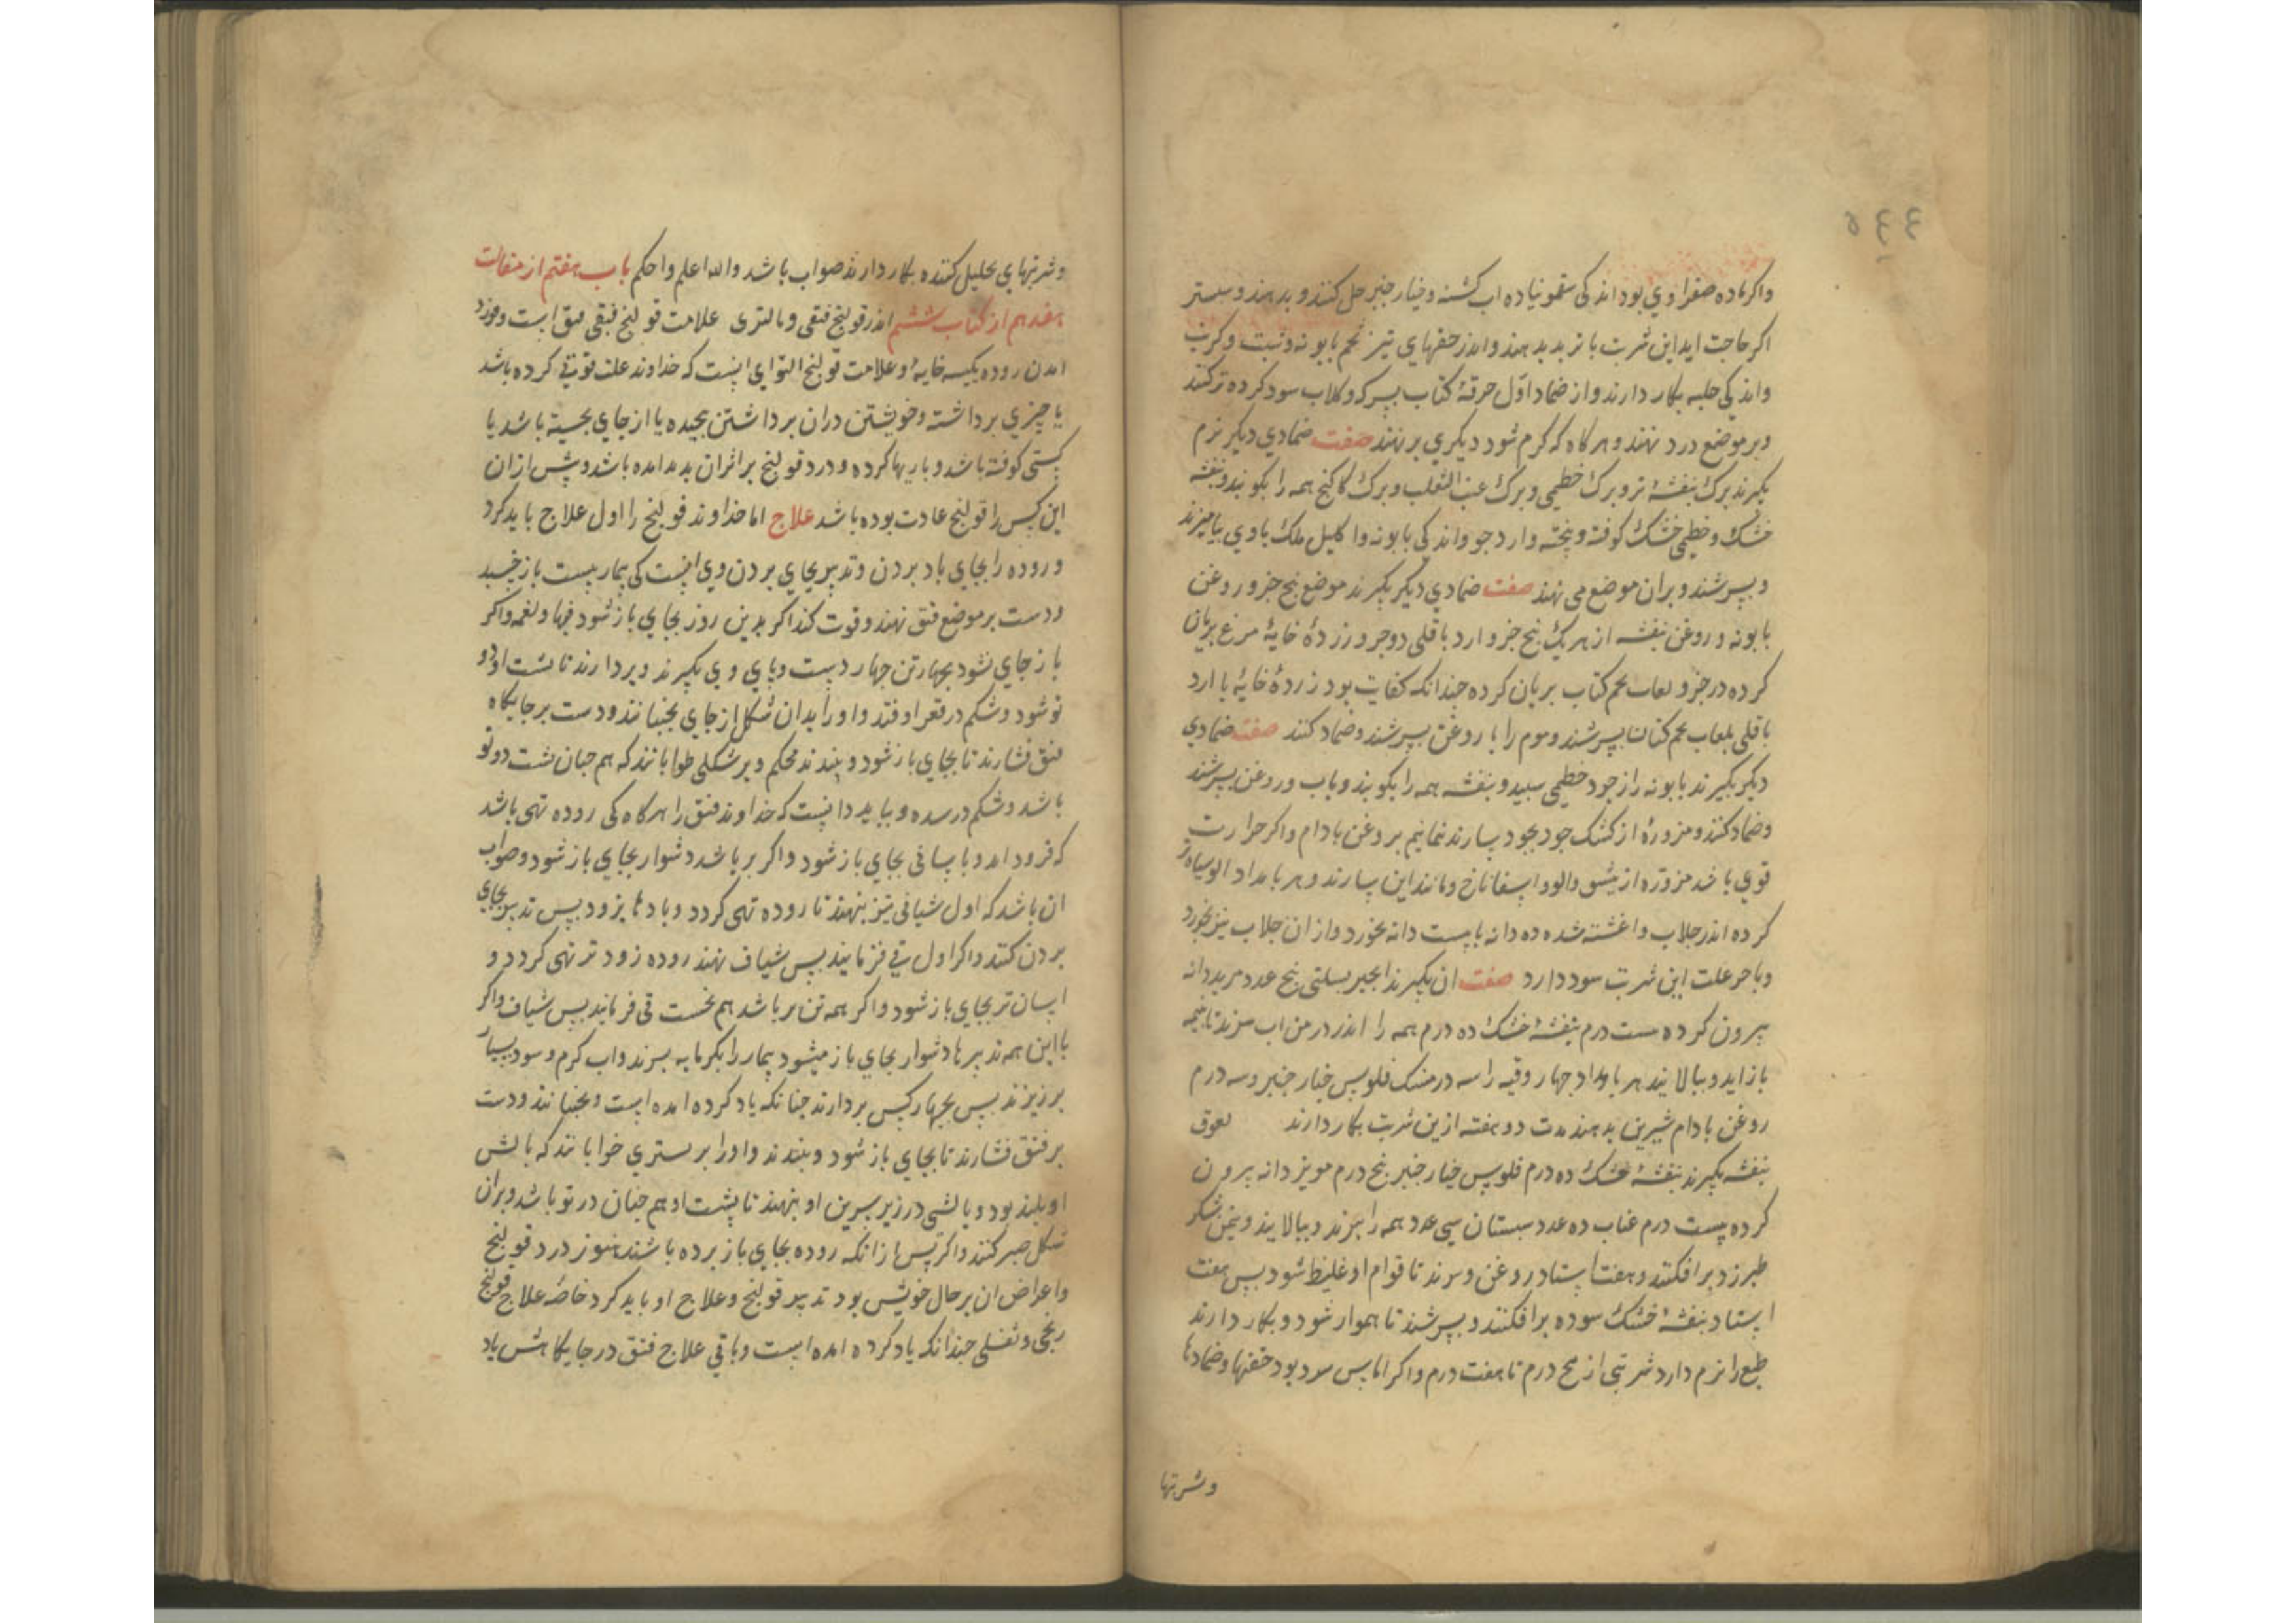 ٥٤٤
واکر ماده صفراوي بود اند کی سقمونیا ده اب کشنه و خیار جنبر حل کنند و بدهند و
اکر حاجت اید این شربت با تربد بدهند و اندر حقنهاي تیز تخم بابونه و شبت و کرنب
واندکی حلبه بکار دارند و از ضماد اول خرقهٔ کتان بسرکه و کلاب سود کرده ترکنند
وبر موضع درد نهند و هرکاه که کرم شود دیکري بر نهند صفت ضمادي دیکر نرم
بکیرند برک بنفشهٔ تر و برک خطمی و برک عنب الثعلب و برک کاکنج همه را بکوبند و بنفشه
خشک و خطمی خشک کوفته و پخته وارد جو واندکی بابونه و اکلیل ملک باوي بیامیزند
و بسرشند و بران موضع می نهند صفت ضمادي دیکر بکیرند موضع پنج جزو روغن
بابونه و روغن بنفشه از هر یک پنج جزو ارد باقلی دو جزو زردهٔ خایهٔ مرغ بریان
کرده در جزو لعاب تخم کتاب بریان کرده جندانکه کفایت بود زردهٔ خایهٔ با ارد
باقلی بلعاب تخم کتان بسرشند و موم را با روغن بسرشند و ضماد کنند صفت ضمادي
دیکر بکیرند بابونه راز جود خطمی سبید و بنفشه همه را بکوبند و باب و روغن بسرشند
وضماد کنند و مزورهٔ از کشک جو دبجود بسارند نمانیم بروغن بادام واکر حرارت
قوي باشد مزوره از مشق والو و اسفاناخ و مانند این بسازند و هر بامداد الو سیاه تر
کرده اندر جلاب و اغشته شده ده دانه با بیست دانه بخورد و از ان جلاب نیز بخورد
وبا حر علت این شربت سود دارد صفت ان بکیرند انجیر بسلتی پنج عدد مریددانه
بیرون کرده بیست درم بنفشهٔ خشک ده درم همه را اندر در من اب بزند تا بنیمه
باز اید و ببالایند هر بامداد جهار وقیه را سه درمسک فلوس خیار جنبر و سه درم
روغن بادام شیرین بدهند مدت دو هفته ازین شربت بکار دارند لعوق
بنفشه بکیرند بنفشهٔ خشک ده درم فلوس خیار جنبر پنج درم مویز دانه بیرون
کرده بیست درم عناب ده عدد سبستان سی عدد همه را بپزند و ببالایند و بنمن شکر
طبرزد برافکنند و هفت استاد روغن و بزند تا قوام او غلیظ شود بس هفت
استاد بنفشهٔ خشک سوده برافکنند و بسرشند تا هموار شود و بکار دارند
طبع را نرم دارد شربتی از پنج درم تا هفت درم واکر اماس سرد بود حقنها و ضمادها
وشربتها
وشربتهاي تحلیل کننده بکار دارند صواب باشد والله اعلم واحکم باب هفتم از مقالت
هفدهم از کتاب ششم اندر قولنج فتقی و مالتوی علامت قولنج فتقی فتق است و فرود
امدن روده بکیسه خایهٔ و علامت قولنج التوایی اینست که خداوند علت قوتی کرده باشد
یا چیزي برداشته و خویشتن دران برداشتن بجیده یا از جاي بجسته باشد یا
کشتی کوفته باشد و باریها کرده و درد قولنج براثران بدید امده باشد و بیش ازان
این کس را قولنج عادت بوده باشد علاج اما خداوند قولنج را اول علاج باید کرد
وروده را بجاي باد بردن و تدبیر بجاي بردن وي اینست کی بیمار بست باز خسبد
ودست بر موضع فتق نهند و قوت کند اکر بدین روز بجاي باز شود فبها و نعمه واکر
باز جاي نشود بجهار تن جهار دست و پاي وي بکیرند و بردارند تا پشت او دو
تو شود و شکم در قعر او فتد و او را بدان شکل از جاي بجنبانند و دست بر جایکاه
فتق فشارند تا بجاي باز شود و ببندند محکم و بر شکلی خوابانند که هم جنان پشت دوتو
باشد و شکم در سده و بباید دانست که خداوند فتق را هرکاه کی روده تهی باشد
که فرود امد و باسانی بجاي باز شود واکر بر باشد دشوار بجاي باز شود و صواب
ان باشد که اول شیافی تیز بنهند تا روده تهی کردد و بادها بزود بس تدبیر بجاي
بردن کنند واکر اول قی فرمایند بس شیاف نهند روده زودتر تهی کردد و
اسان تر بجاي باز شود واکر همه تن بر باشد هم نخست قی فرمایند بس شیاف واکر
با این همه تدبیرها دشوار بجاي باز میشود بیمار را بکرمابه برند و اب کرم و سود بسیار
برزیزند بس بجهار کس بردارند جنانکه یاد کرده امده است و بجنبانند و دست
بر فتق فشارند تا بجاي باز شود و ببندند و او را بر بستري خوابانند که بالش
او بلند بود و بالشی در زیر سرین او بنهند تا پشت او هم جنان در تو باشد و بران
شکل صبر کنند واکر پس ازانکه روده بجاي باز برده باشند هنوز درد قولنج
واعراض ان بر حال خویش بود تدبیر قولنج و علاج او باید کرد خاصه علاج قولنج
ریحی و ثفلی جندانکه یاد کرده امده است و باقی علاج فتق در جایکاهش یاد